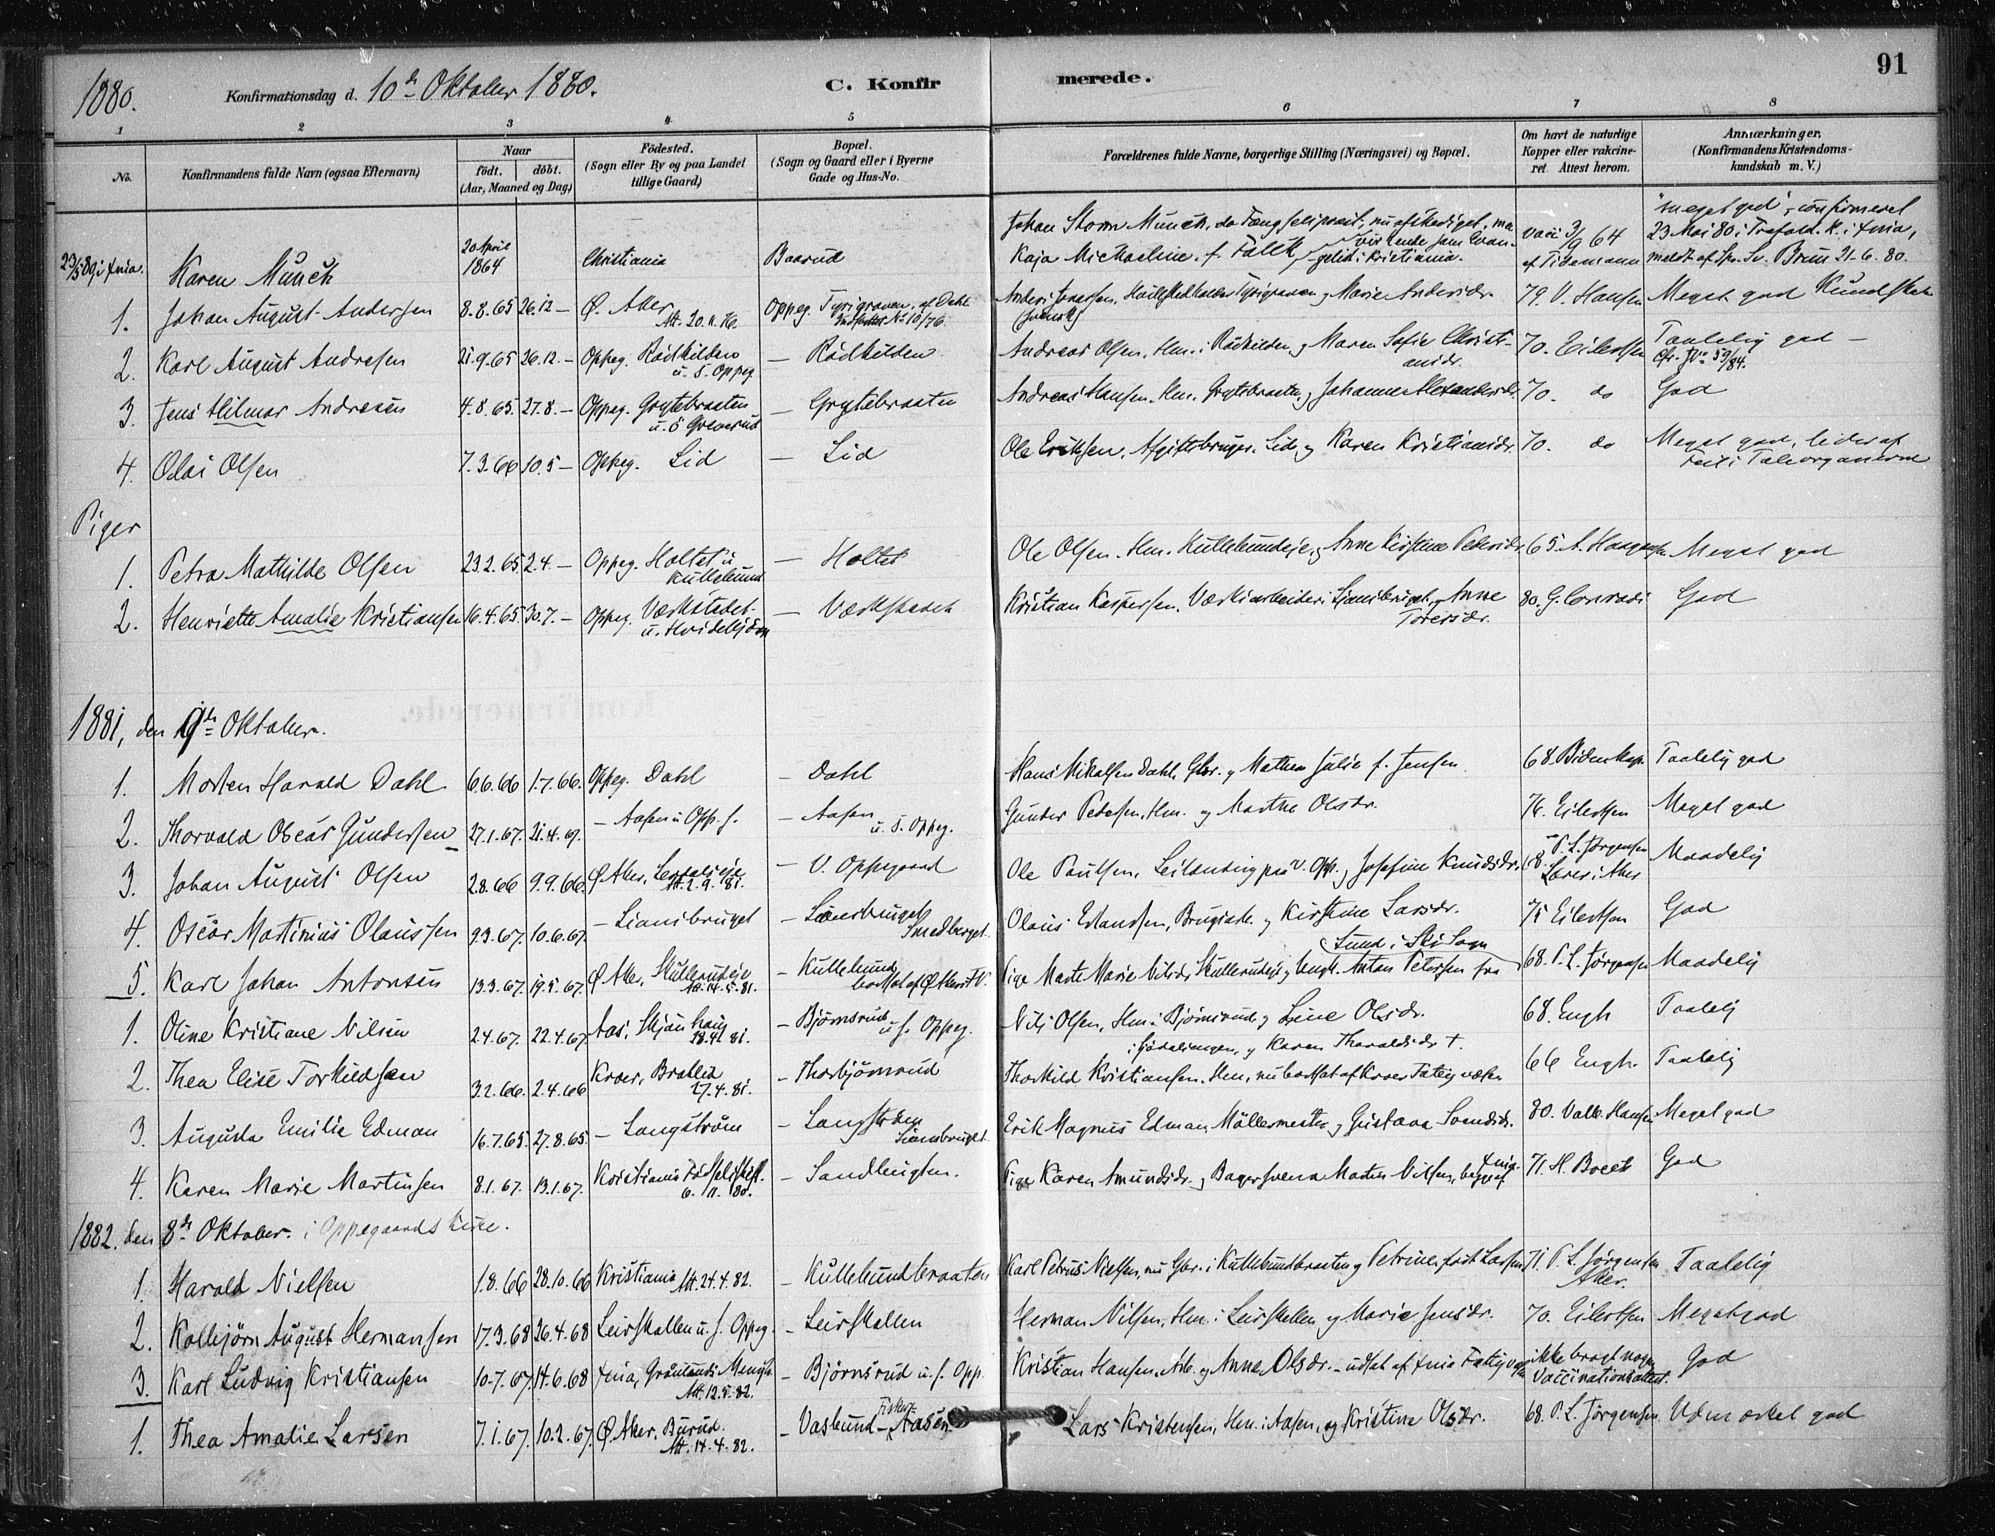 91
1880. Konfirmationsdag d. 10de Oktober 1880. C. Konfirmerede.
1 2 3 4 5 6 7 8
No. Konfirmandens fulde Navn (ogsaa Efternavn) Naar födt. döbt. (Aar, Maaned og Dag) Födested. (Sogn eller By og paa Landet tillige Gaard) Bopæl. (Sogn og Gaard eller i Byerne Gade og Hus-No. Forældrenes fulde Navne, borgerlige Stilling (Næringsvei) og Bopæl. Om havt de naturlige Kopper eller vakcineret. Attest herom. Anmærkninger. (Konfirmandens Kristendomskundskab m. V.)
23/5 80 i Xnia. Karen Munch 20 April 1864 Christiania Baarud Johan Storm Munch, Kaja Michaeline f. Falck vacc 3/9 64 af Tidemann "meget god", confirmeret 23 Mai 80 i Trefold. K. i Xnia, meldt af Spr. Sv. Brun 21-6.80.
1. Johan August Andersen 8.8.65 26.12 — Ø. Aker Att. 20.11.76. Oppeg. Tyrigraven Marie Andersdr. (svensk) 79. V. Hansen Meget god Kundskab
2. Karl August Andresen 21.9.65 26.12. — Oppeg. Rødkilden u. S. Oppeg — Rødkilden Andreas Olsen, Hm. i Rødkilden og Maren Sofie Christiansdr. 70. Eilertsen Taalelig god —
3. Jens Hilmar Andresen 4.8.65. 27.8. — Oppeg. Grytebraaten u. ö Greverud — Grytebraaten Andreas Hansen, Hm. Grytebraaten, og Johanne Alexandersdr. 70. do God
4. Olai Olsen 7.3.66 10.5 — Oppeg. Lid — Lid Ole Eriksen, Afgiftsbruger Lid, og Karen Kristiansdr. 70. do Meget god, lider af Feil i Taleorganerne
Piger
1. Petra Mathilde Olsen 23.2.65. 2.4. — Oppeg. Holtet u Kullebund — Holtet Ole Olsen, Hm. Kullebundeje, og Anne Kirstine Pedersdr. 65 A. Haagensen Meget god
2. Henriette Amalie Kristiansen 16.4.65. 30.7. — Oppeg. Værkstedet u. Hvidebjörn — Værkstedet Kristian Kaspersen, Værksarbeider i Ljansbruget, og Anne Toresdr. 80. G. Conradi God
1881, den 9de Oktober.
1. Morten Harald Dahl 6.6.66 1.7.66. Oppeg. Dahl — Dahl Hans Mikalsen Dahl, Gbr. og Mathea Julie f. Jensen. 68. Taalelig god
2. Thorvald Oscar Gundersen 27.1.67. 21.4.67. — Aasen u Opp. S. — Aasen u. S. Oppeg. Gunder Pedersen, Hm. og Marthe Olsdr. 76. Eilertsen Meget god
3. Johan August Olsen 2.8.66 9.9.66. Ø. Aker, Att. 2.9.81. — V. Oppegaard Ole Paulsen, Leilænding paa V. Opp. og Josefine Knudsdr. 68. P. L. Jørgensen Lærer i Aker Maadelig
4. Oscar Martinius Olaussen 9.3.67. 10.6.67. — Liansbruget — Liansbruget Smedberget. Olaus Erlandsen, Brugsarb. og Kirstine Larsdr. 75 Eilertsen God
5. Karl Johan Antonsen 13.3.67. 19.5.67. Ø Aker, Skullerudeje Att. 14.5.81. — Kullebund bortsat af Ø Akers F.V. Pige Marte Marie Nilsdr. Skullerudeje og Ungk. Anton Petersen fra Sund i Ski Sogn 68. P. L. Jørgensen Maadelig
1. Oline Kristiane Nilsen 2.4.67. 22.4.67. Aas, Skjönhaug — Björnsrud u S. Oppeg. Nils Olsen, Hm. i Björnsrud, og Line Olsdr. 68. Engh Taalelig
2. Thea Elise Torkildsen 3.2.66. 2.4.66 Kroer, Bratlid 27.4.81. — Thorbjörnrud Thorkild Kristiansen, Hm., og Karen Tharaldsdr †. nu bortsat af Kroer Fattigvæsen 66 Engh. Taalelig
3. Augusta Emilie Edman 16.7.65. 27.8.65. — Langström — Liansbruget. Erik Magnus Edman Möllermester og Gustava Svendsdr. 80. Valb. Hansen Meget god
4. Karen Marie Martinsen 8.1.67. 13.1.67. Kristiania Fødselsstift. 6.11.80. — Sandbugten. Pige Karen Amundsdr. og Bagersvend Martin Nilsen, begge af Xnia. 71. H. Boeck God
1882. den 8de Oktober. i Oppegaards Kirke.
1. Harald Nielsen 1.8.66 28.10.66 Kristiania Att. 24.4.82. — Kullebundbraaten Karl Petrus Nielsen, nu Gbr. i Kullebundbraaten og Petrine født Larsen 71. P. L. Jørgensen Aker. Taalelig
2. Kolbjörn August Hermansen 17.3.68 26.4.68 Leirskallen u. S. Oppeg. — Leirskallen Herman Nilsen, Hm. i Leirskallen og Marie Jensdr. 70. Eilertsen Meget god
3. Karl Ludvig Kristiansen 10.7.67 14.6.68 Xnia, Grönlands Menigh. Att. 12.5.82. — Björnsrud u. S. Opp. Kristian Hansen, Arb. og Anne Olsdr. — udsat af Xnia Fattigv. ikke bragt nogen Vaccinationsattest. God
1. Thea Amalie Larsen 7.1.67. 10.2.67. Ø. Aker, Burud. Att. 14.4.82. — Vasbund — Aasen Lars Kristensen, Hm. i Aasen, og Kristine Olsdr. 68. P. L. Jørgensen. Udmærket god